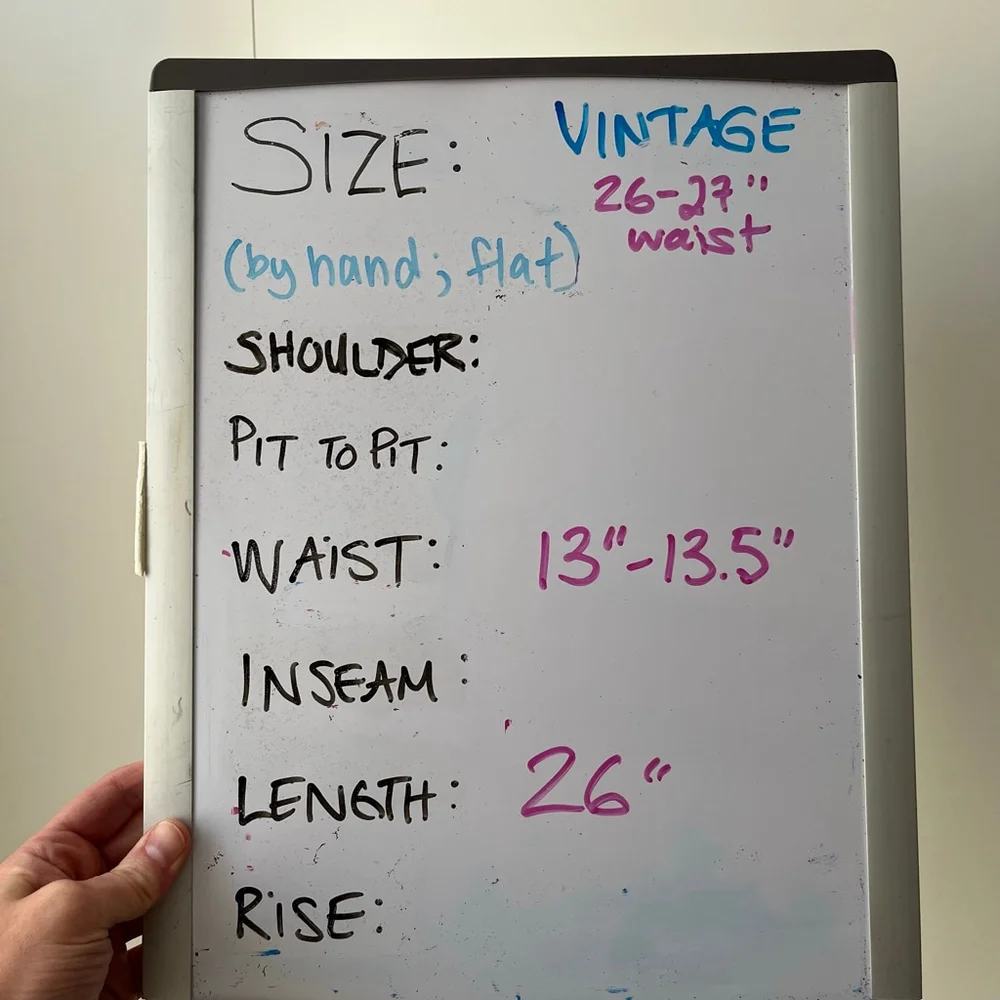 SIZE: VINTAGE
26-27" waist
(by hand; flat)
SHOULDER:
PIT TO PIT:
WAIST: 13"-13.5"
INSEAM:
LENGTH: 26"
RISE: